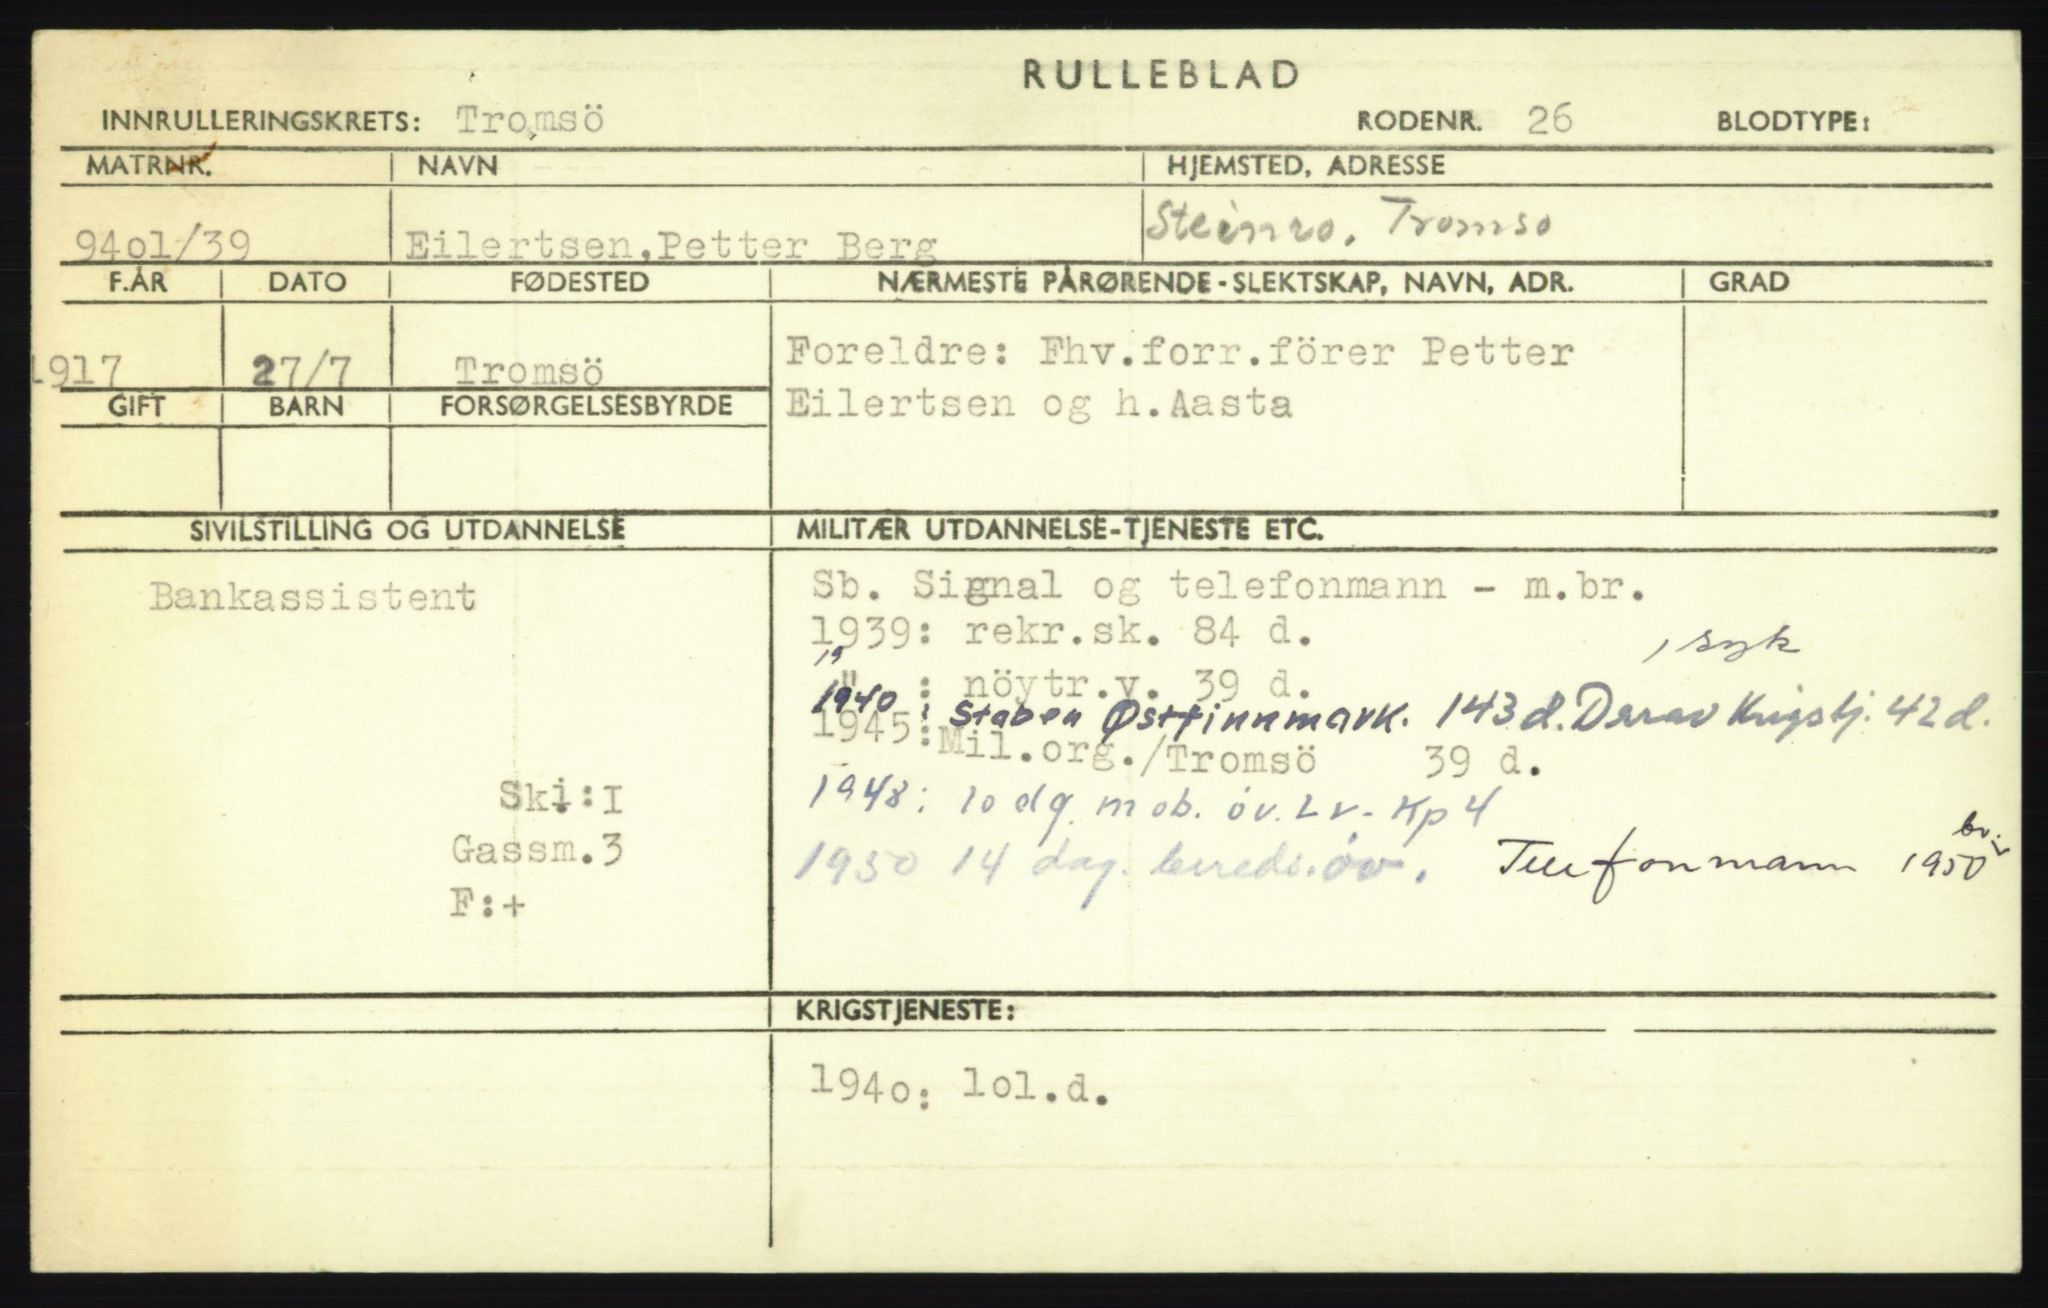 RULLEBLAD
INNRULLERINGSKRETS: Tromsö RODENR. 26 BLODTYPE:
MATRNR. NAVN HJEMSTED, ADRESSE
94ol/39 Eilertsen,Petter Berg Steinro, Tromsø
F.ÅR DATO FØDESTED NÆRMESTE PÅRØRENDE - SLEKTSKAP, NAVN, ADR. GRAD
1917 27/7 Tromsö Foreldre: Fhv.forr.förer Petter
Eilertsen og h.Aasta
GIFT BARN FORSØRGELSESBYRDE
SIVILSTILLING OG UTDANNELSE MILITÆR UTDANNELSE-TJENESTE ETC.
Bankassistent Sb. Signal og telefonmann - m.br.
1939: rekr.sk. 84 d.
, syk
" : nöytr.v. 39 d.
1940: Staben Østfinnmark. 143 d. Derav Krigstj. 42 d.
1945: Mil.org./Tromsö 39 d.
Ski:I 1948: 10 dg. mob. øv. Lv- Kp 4
Gassm.3 1950 14 dag. bereds. øv. Telefonmann 1950 br.
F:+
KRIGSTJENESTE:
194o: lol.d.